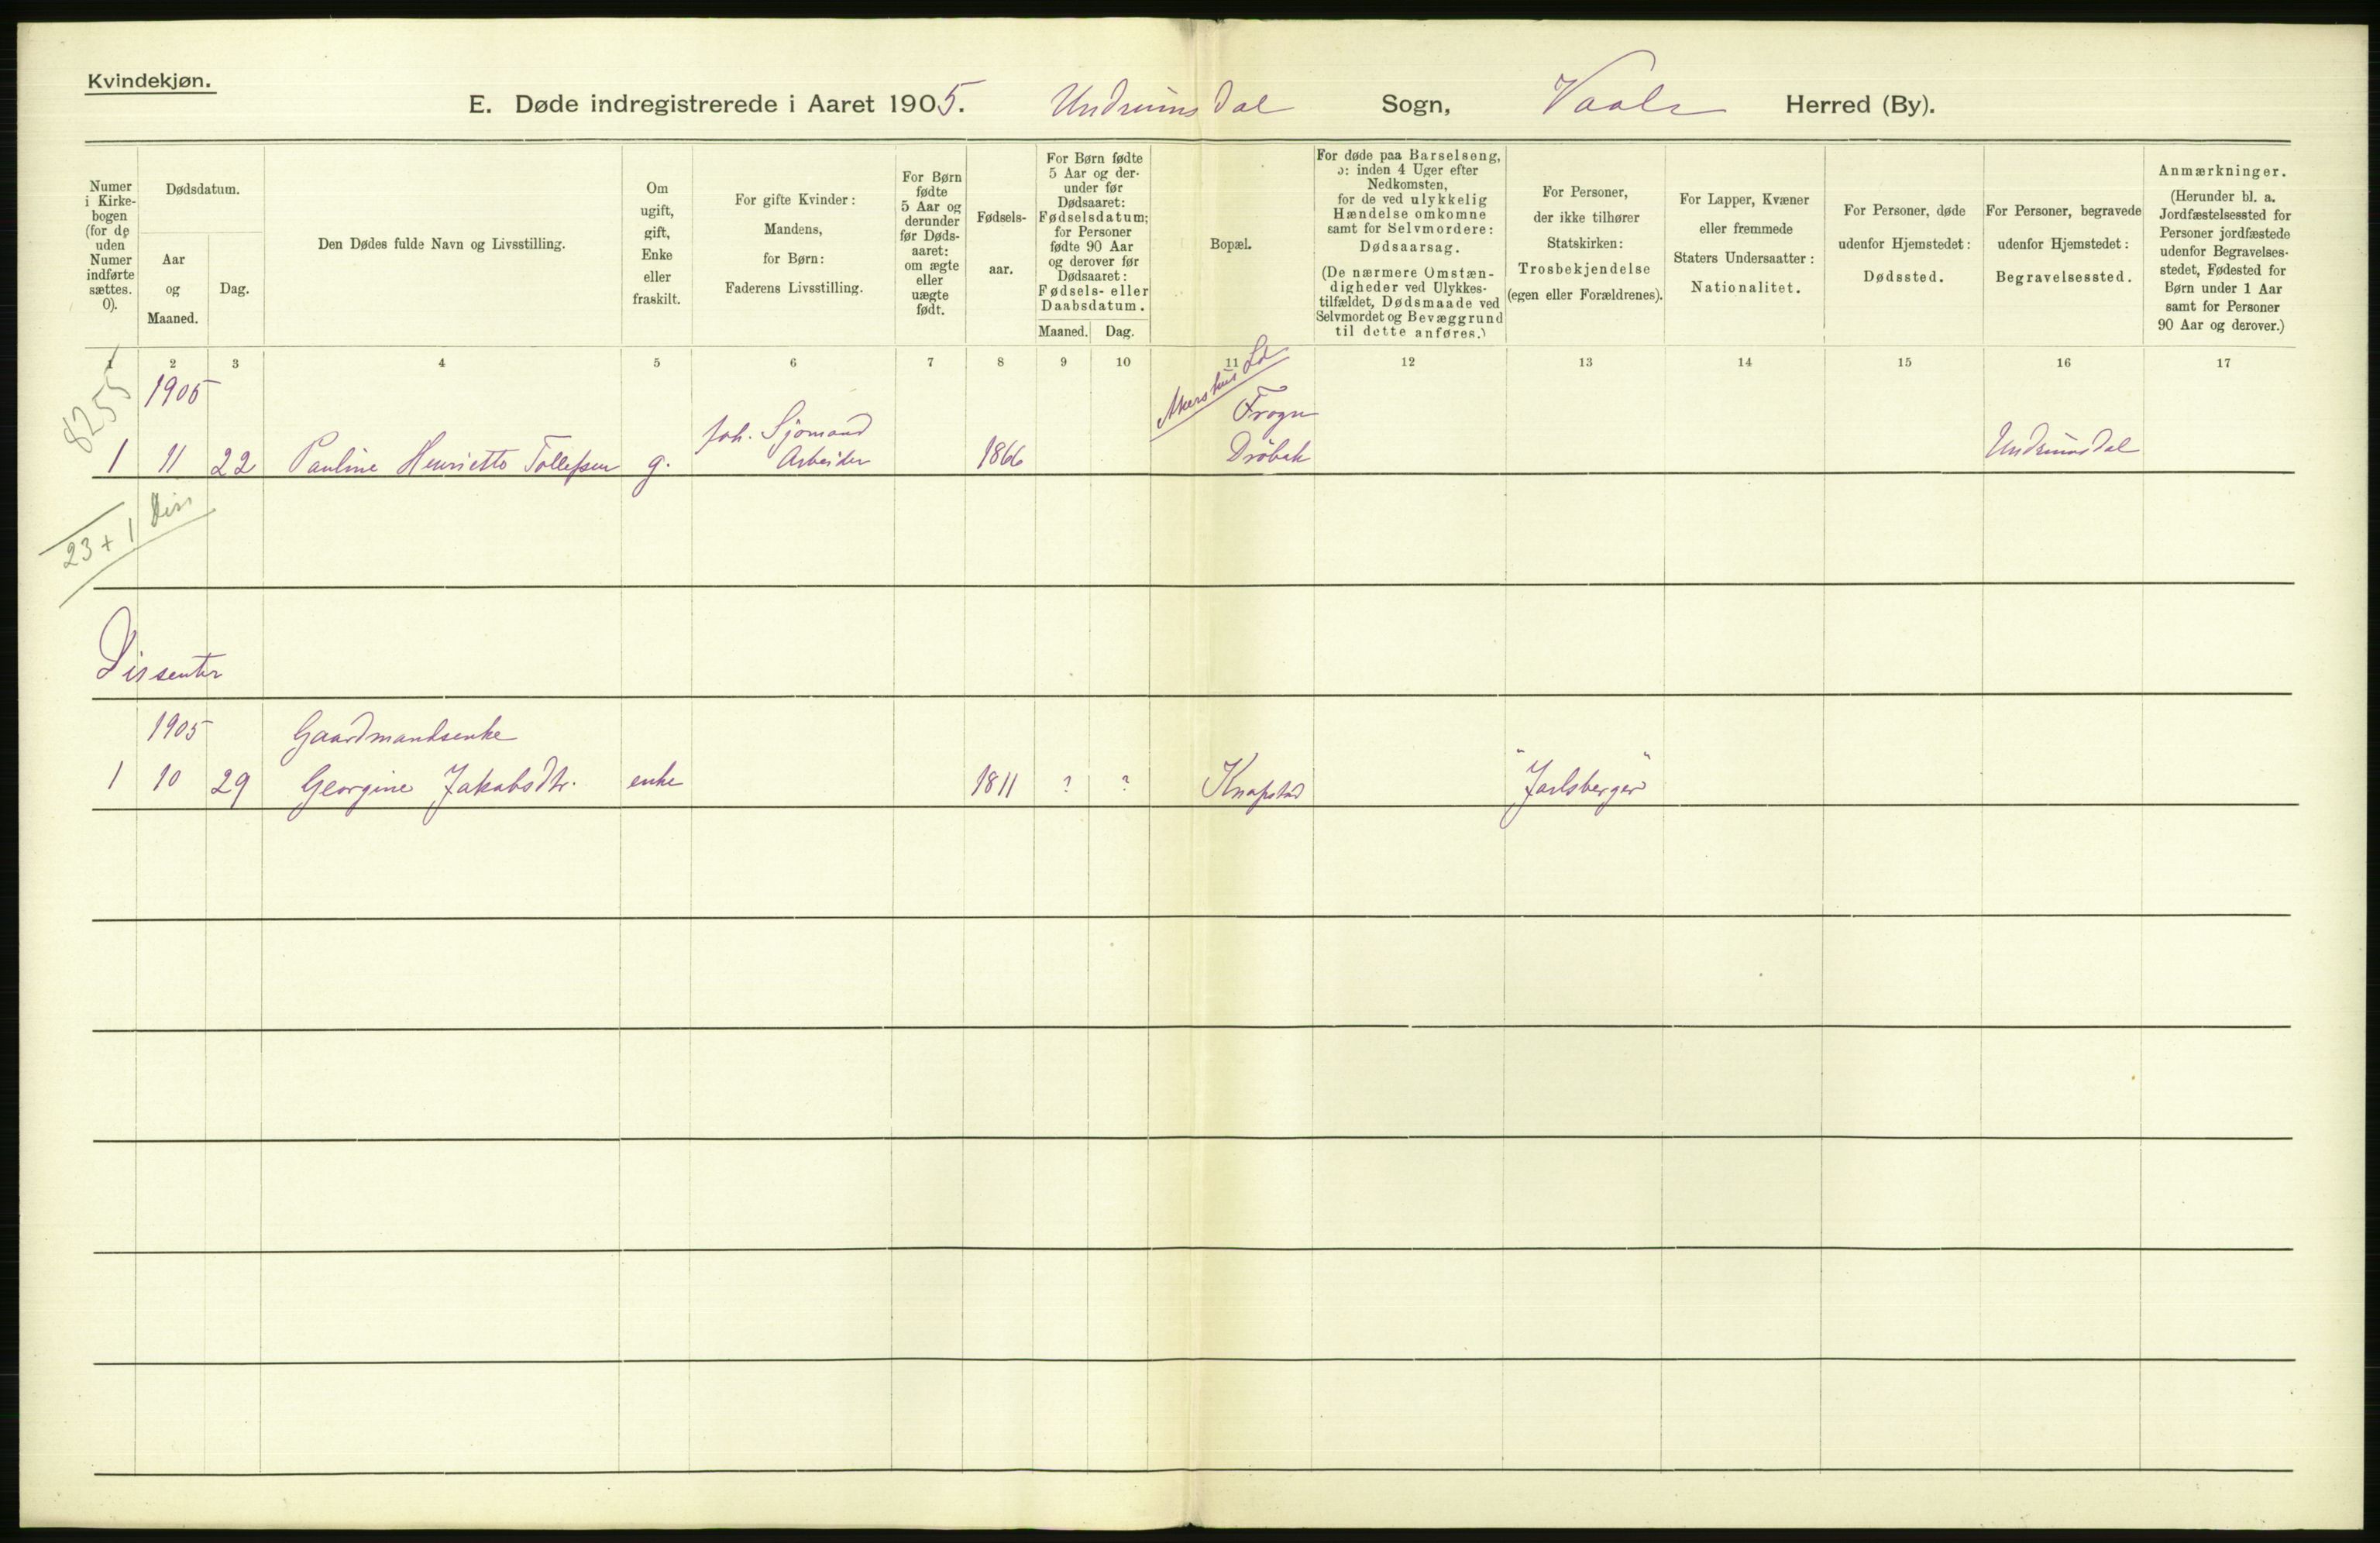 Kvindekjøn.
E. Døde indregistrerede i Aaret 1905. Undrumsdal Sogn, Vaale Herred (By).
Numer i Kirkebogen (for de uden Numer indførte sættes. 0).
Dødsdatum.
Aar og Maaned.
Dag.
Den Dødes fulde Navn og Livsstilling.
Om ugift, gift, Enke eller fraskilt.
For gifte Kvinder: Mandens, for Børn: Faderens Livsstilling.
For Børn fødte 5 Aar og derunder før Dødsaaret: om ægte eller uægte født.
Fødselsaar.
For Børn fødte 5 Aar og derunder før Dødsaaret: Fødselsdatum; for Personer fødte 90 Aar og derover før Dødsaaret: Fødsels- eller Daabsdatum.
Maaned. Dag.
Bopæl.
For døde paa Barselseng, ɔ: inden 4 Uger efter Nedkomsten, for de ved ulykkelig Hændelse omkomne samt for Selvmordere: Dødsaarsag.
(De nærmere Omstændigheder ved Ulykkestilfældet, Dødsmaade ved Selvmordet og Bevæggrund til dette anføres.)
For Personer, der ikke tilhører Statskirken: Trosbekjendelse (egen eller Forældrenes).
For Lapper, Kvæner eller fremmede Staters Undersaatter: Nationalitet.
For Personer, døde udenfor Hjemstedet: Dødssted.
For Personer, begravede udenfor Hjemstedet: Begravelsessted.
Anmærkninger.
(Herunder bl. a. Jordfæstelsessted for Personer jordfæstede udenfor Begravelsesstedet, Fødested for Børn under 1 Aar samt for Personer 90 Aar og derover.)
1 2 3 4 5 6 7 8 9 10 11 12 13 14 15 16 17
8255
1905
Akershus
Frogn
fxh. Sjømand
1 11 22 Pauline Henriette Tollefsen g. Arbeider 1866 Drøbak Undrumsdal
23 + 1 Diss
Dissenter
1905 Gaardmandsenke
1 10 29 Georgine Jakobsdtr. enke 1811 ? ? Knapstad "Jarlsberger"